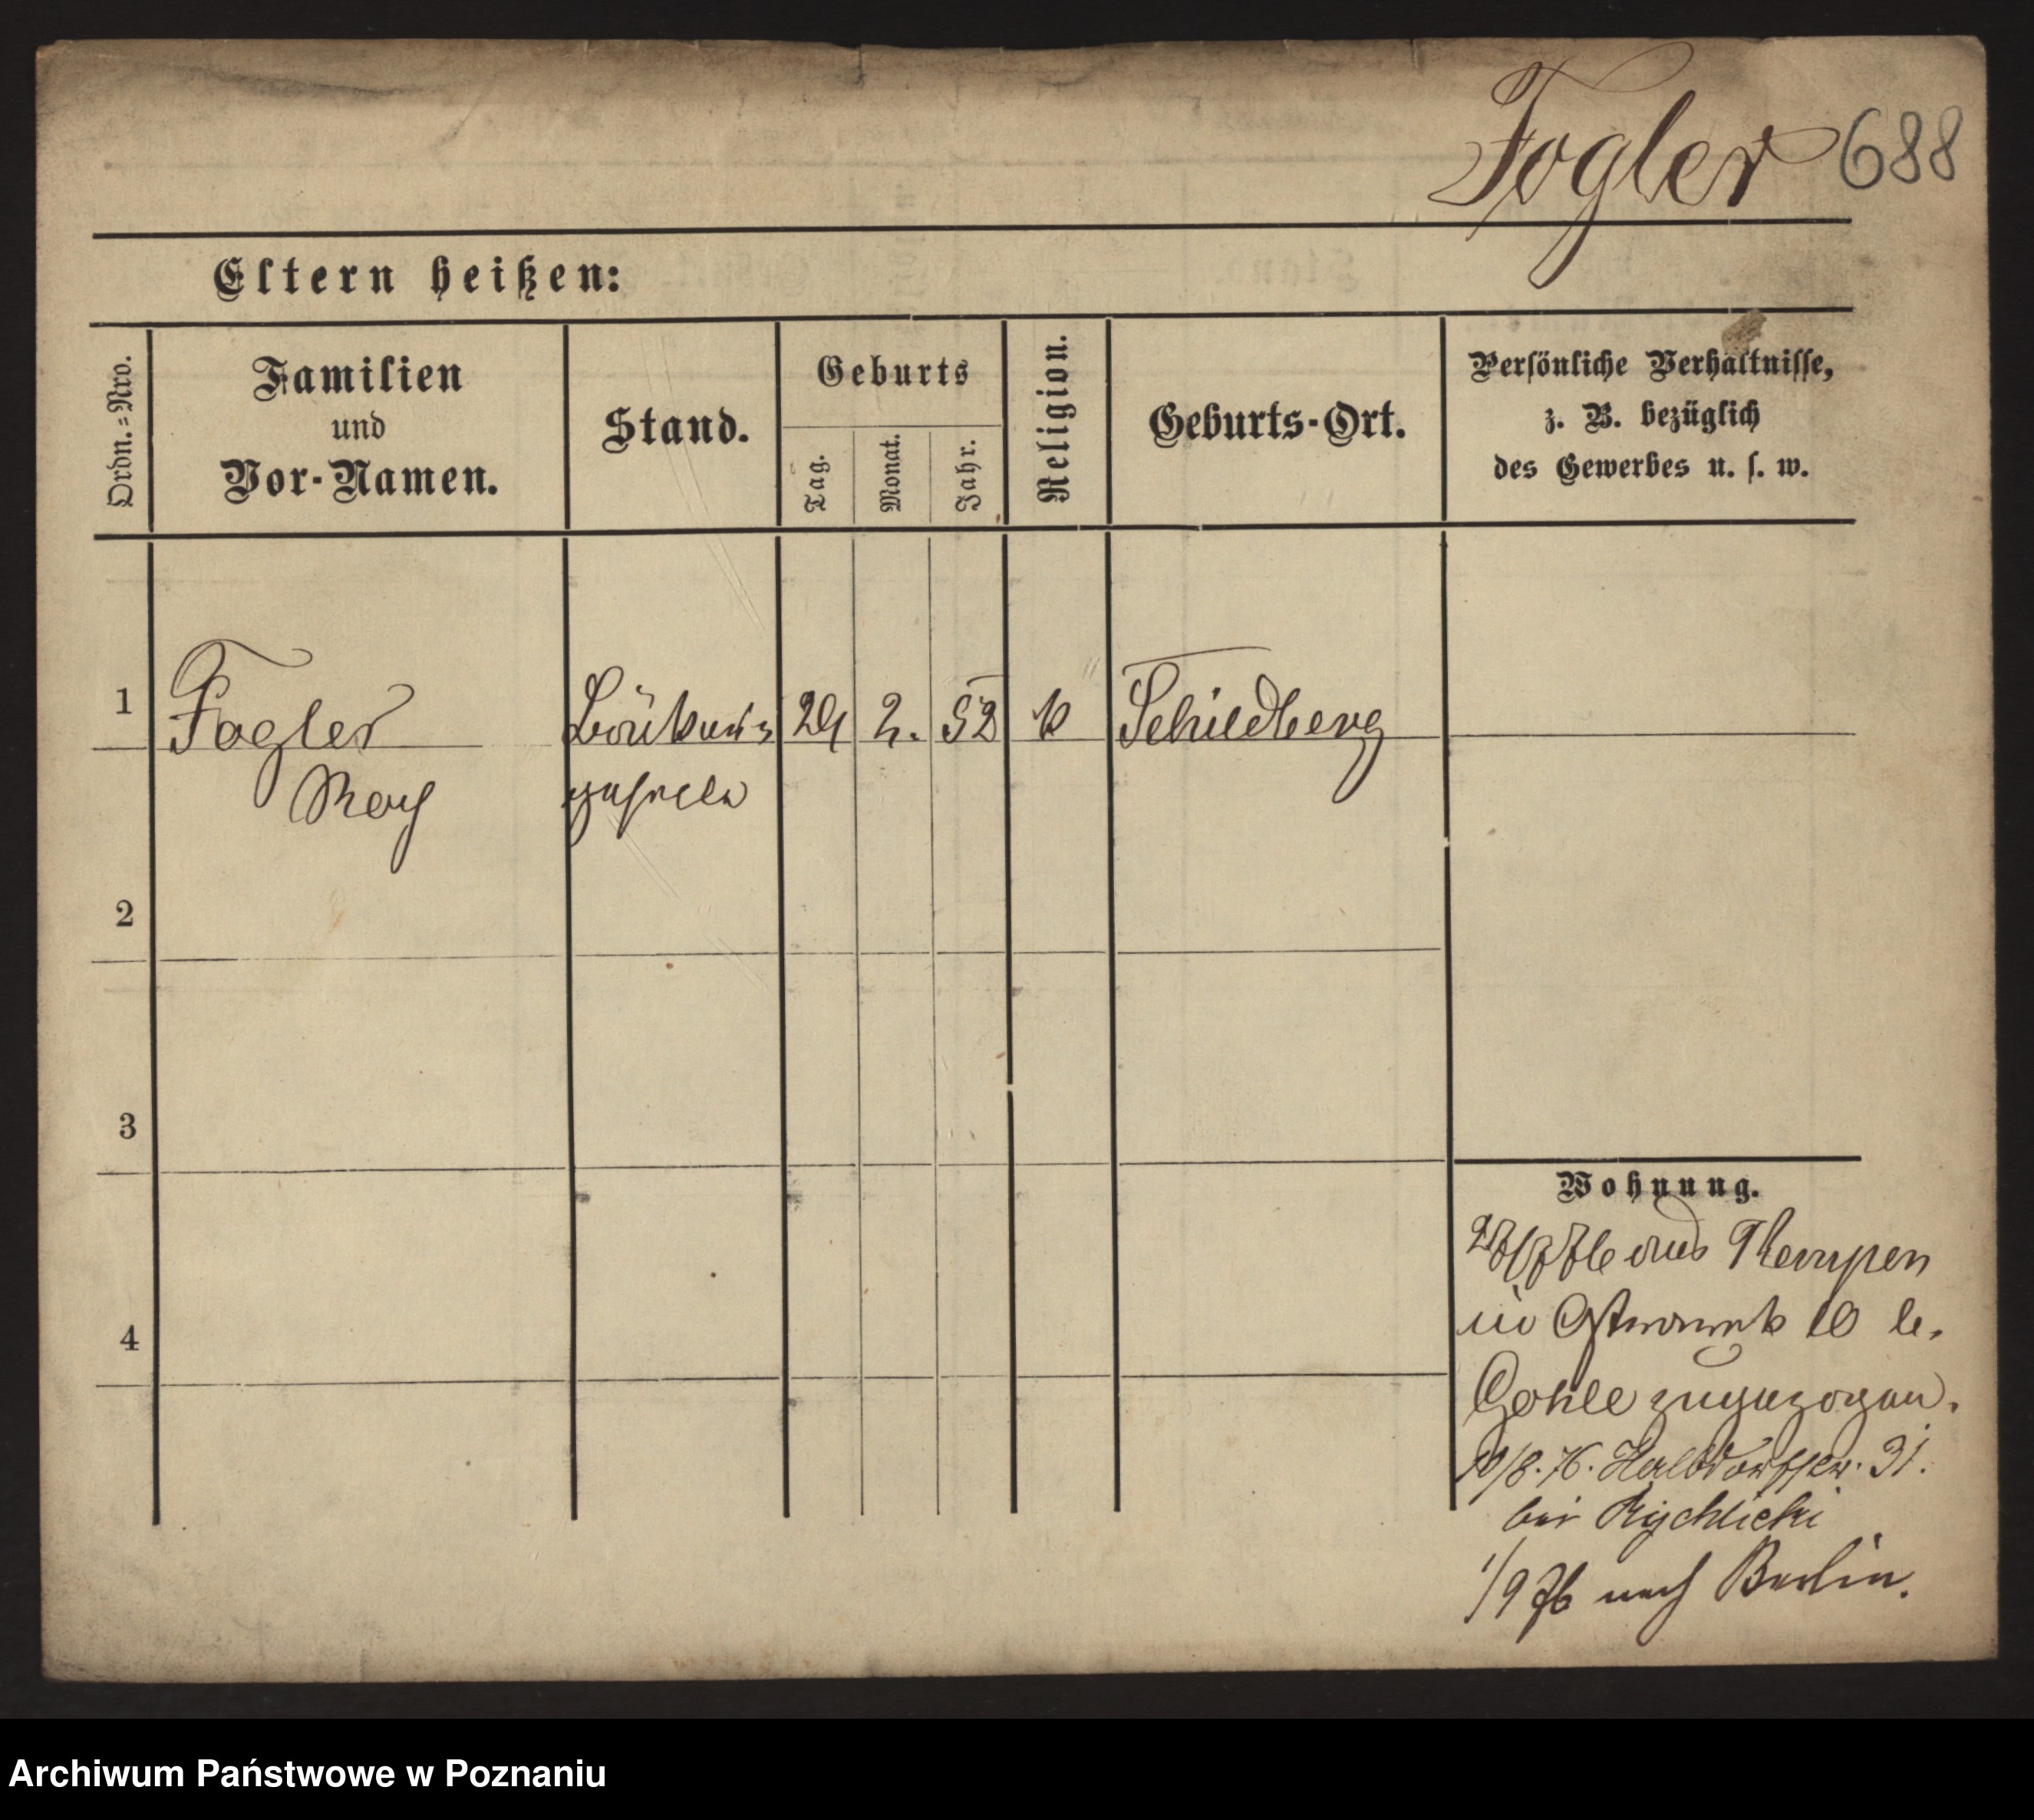 Fogler 688
Eltern heißen:
Ordn.-Nro.
Familien
und
Vor-Namen.
Stand.
Geburts
Tag.
Monat.
Jahr.
Religion.
Geburts-Ort.
Persönliche Verhältnisse,
z. B. bezüglich
des Gewerbes u. s. w.
1 Fogler 2. 52 k Schildberg
gesell
2
3
4
Wohnung.
76 aus Kempen
in 10 b.
zugezogen.
10/8. 76. Halbdorfstr. 31.
bei Rychlicki
1/9 76 nach Berlin.
Archiwum Państwowe w Poznaniu